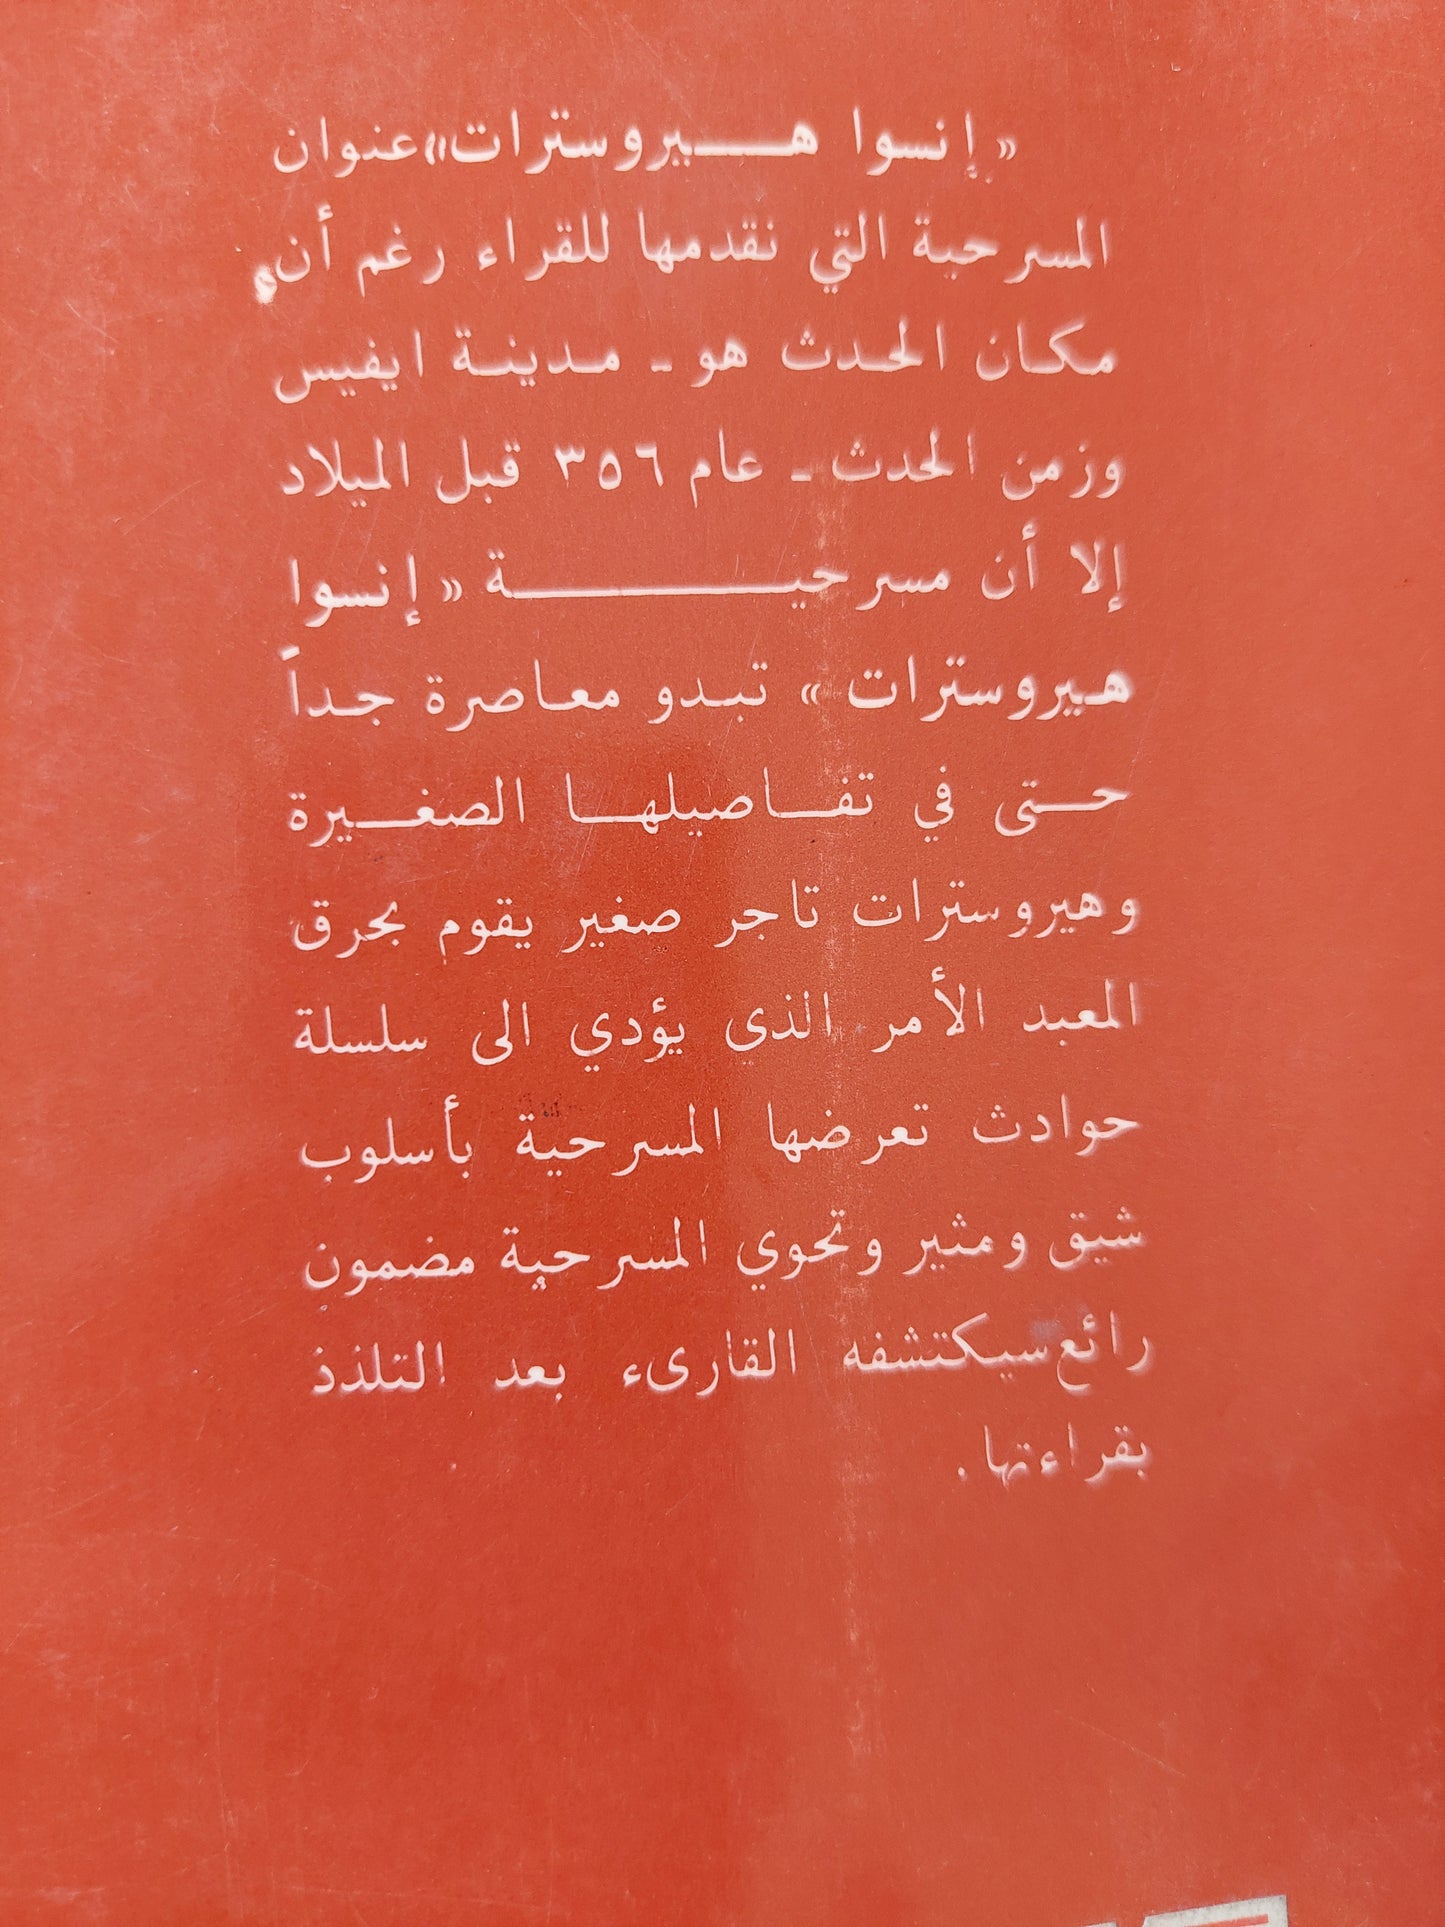 « إنسوا هيروسترات» عنوان
المسرحية التي نقدمها للقراء رغم أن
مكان الحدث هو ـ مدينة ايفيس
وزمن الحدث ـ عام ٣٥٦ قبل الميلاد
إلا أن مسرحية « إنسوا
هيروسترات » تبدو معاصرة جداً
حتى في تفاصيلها الصغيرة
وهيروسترات تاجر صغير يقوم بحرق
المعبد الأمر الذي يؤدي الى سلسلة
حوادث تعرضها المسرحية بأسلوب
شيق ومثير وتحوي المسرحية مضمون
رائع سيكتشفه القارىء بعد التلذذ
بقراءتها .